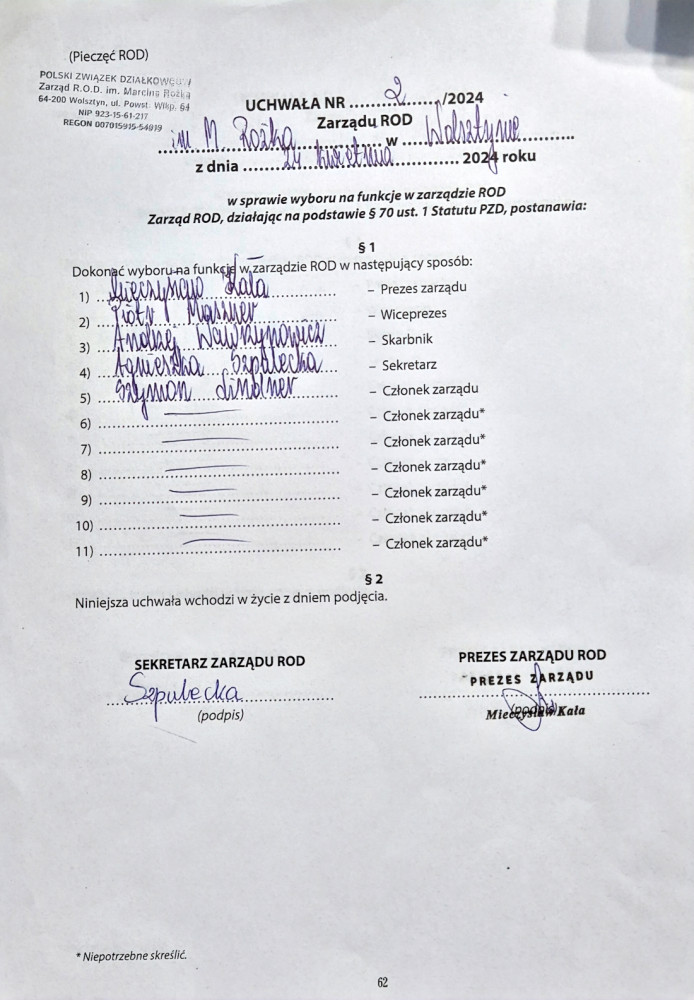 (Pieczęć ROD)
POLSKI ZWIĄZEK DZIAŁKOWCÓW
Zarząd R.O.D. im. Marcina Rożka
64-200 Wolsztyn, ul. Powst. Wlkp. 64
NIP 923-15-61-217
REGON 007015915-54019
UCHWAŁA NR ......2....../2024
Zarządu ROD
im M. Rożka w Wolsztynie
z dnia 24 kwietnia 2024 roku
w sprawie wyboru na funkcje w zarządzie ROD
Zarząd ROD, działając na podstawie § 70 ust. 1 Statutu PZD, postanawia:
§ 1
Dokonać wyboru na funkcję w zarządzie ROD w następujący sposób:
1) Kała – Prezes zarządu
2) Piotr – Wiceprezes
3) Andrzej Wawrzynowicz – Skarbnik
4) Agnieszka Szpulecka – Sekretarz
5) Szymon Lindner – Członek zarządu
6) – Członek zarządu*
7) – Członek zarządu*
8) – Członek zarządu*
9) – Członek zarządu*
10) – Członek zarządu*
11) – Członek zarządu*
§ 2
Niniejsza uchwała wchodzi w życie z dniem podjęcia.
SEKRETARZ ZARZĄDU ROD
Szpulecka
(podpis)
PREZES ZARZĄDU ROD
PREZES ZARZĄDU
(podpis)
Mieczysław Kała
* Niepotrzebne skreślić.
62